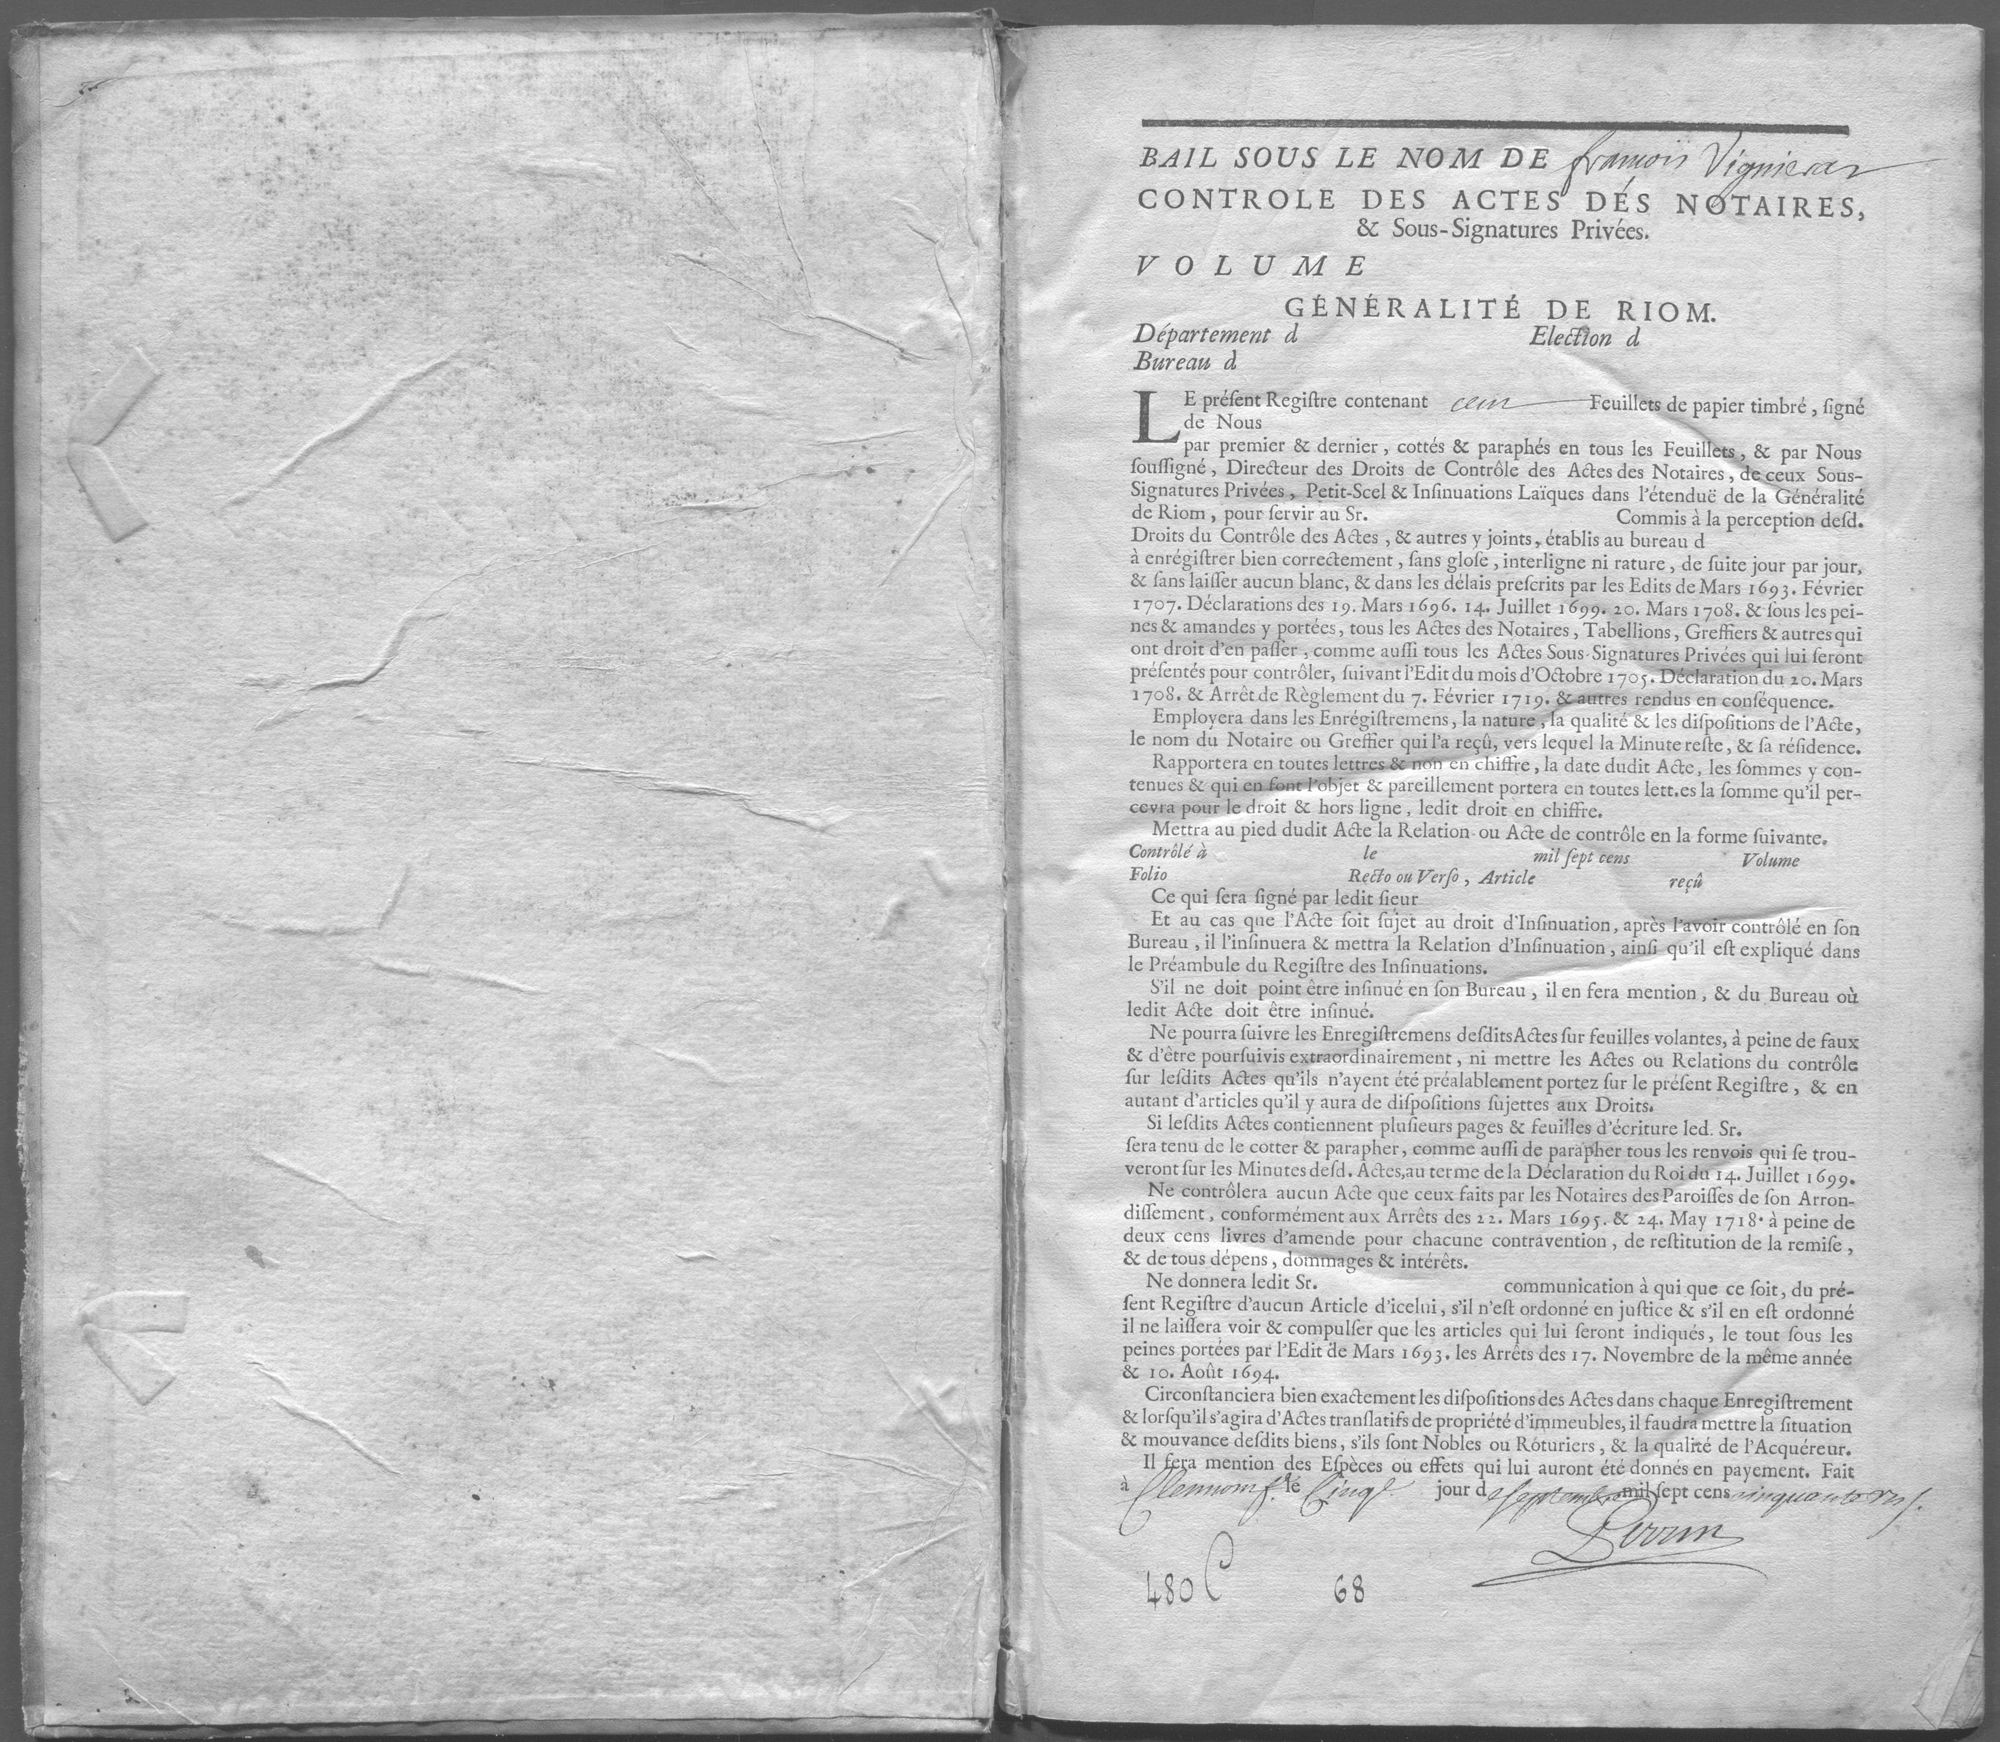 BAIL SOUS LE NOM DE françois Vignieras
CONTROLE DES ACTES DÉS NOTAIRES,
& Sous-Signatures Privées.
VOLUME
GÉNÉRALITÉ DE RIOM.
Département d Election d
Bureau d
LE préſent Regiſtre contenant cent Feuillets de papier timbré, ſigné
de Nous
par premier & dernier, cottés & paraphés en tous les Feuillets, & par Nous
ſouſſigné, Directeur des Droits de Contrôle des Actes des Notaires, de ceux Sous-
Signatures Privées, Petit-Scel & Inſinuations Laïques dans l'étenduë de la Généralité
de Riom, pour ſervir au Sr. Commis à la perception deſd.
Droits du Contrôle des Actes, & autres y joints, établis au bureau d
à enrégiſtrer bien correctement, ſans gloſe, interligne ni rature, de ſuite jour par jour,
& ſans laiſſer aucun blanc, & dans les délais preſcrits par les Edits de Mars 1693. Février
1707. Déclarations des 19. Mars 1696. 14. Juillet 1699. 20. Mars 1708. & ſous les pei-
nes & amandes y portées, tous les Actes des Notaires, Tabellions, Greffiers & autres qui
ont droit d'en paſſer, comme auſſi tous les Actes Sous-Signatures Privées qui lui ſeront
préſentés pour contrôler, ſuivant l'Edit du mois d'Octobre 1705. Déclaration du 20. Mars
1708. & Arrêt de Règlement du 7. Février 1719. & autres rendus en conſéquence.
Employera dans les Enrégiſtremens, la nature, la qualité & les diſpoſitions de l'Acte,
le nom du Notaire ou Greffier qui l'a reçû, vers lequel la Minute reſte, & ſa réſidence.
Rapportera en toutes lettres & non en chiffre, la date dudit Acte, les ſommes y con-
tenues & qui en font l'objet & pareillement portera en toutes lett.es la ſomme qu'il per-
cevra pour le droit & hors ligne, ledit droit en chiffre.
Mettra au pied dudit Acte la Relation ou Acte de contrôle en la forme ſuivante.
Contrôlé à le mil ſept cens Volume
Folio Recto ou Verſo, Article reçû
Ce qui ſera ſigné par ledit ſieur
Et au cas que l'Acte ſoit ſujet au droit d'Inſinuation, après l'avoir contrôlé en ſon
Bureau, il l'inſinuera & mettra la Relation d'Inſinuation, ainſi qu'il eſt expliqué dans
le Préambule du Regiſtre des Inſinuations.
S'il ne doit point être inſinué en ſon Bureau, il en fera mention, & du Bureau où
ledit Acte doit être inſinué.
Ne pourra ſuivre les Enregiſtremens deſdits Actes ſur feuilles volantes, à peine de faux
& d'être pourſuivis extraordinairement, ni mettre les Actes ou Relations du contrôle
ſur leſdits Actes qu'ils n'ayent été préalablement portez ſur le préſent Regiſtre, & en
autant d'articles qu'il y aura de diſpoſitions ſujettes aux Droits.
Si leſdits Actes contiennent pluſieurs pages & feuilles d'écriture led. Sr.
ſera tenu de le cotter & parapher, comme auſſi de parapher tous les renvois qui ſe trou-
veront ſur les Minutes deſd. Actes, au terme de la Déclaration du Roi du 14. Juillet 1699.
Ne contrôlera aucun Acte que ceux faits par les Notaires des Paroiſſes de ſon Arron-
diſſement, conformément aux Arrêts des 22. Mars 1695. & 24. May 1718. à peine de
deux cens livres d'amende pour chacune contravention, de reſtitution de la remiſe,
& de tous dépens, dommages & intérêts.
Ne donnera ledit Sr. communication à qui que ce ſoit, du pré-
ſent Regiſtre d'aucun Article d'icelui, s'il n'eſt ordonné en juſtice & s'il en eſt ordonné
il ne laiſſera voir & compulſer que les articles qui lui ſeront indiqués, le tout ſous les
peines portées par l'Edit de Mars 1693. les Arrêts des 17. Novembre de la même année
& 10. Août 1694.
Circonſtanciera bien exactement les diſpoſitions des Actes dans chaque Enregiſtrement
& lorſqu'il s'agira d'Actes tranſlatifs de propriété d'immeubles, il faudra mettre la ſituation
& mouvance deſdits biens, s'ils ſont Nobles ou Roturiers, & la qualité de l'Acquéreur.
Il ſera mention des Eſpèces ou effets qui lui auront été donnés en payement. Fait
à Clermont f. le Cinq jour de septembre mil ſept cens cinquante
Perrin
480 C 68